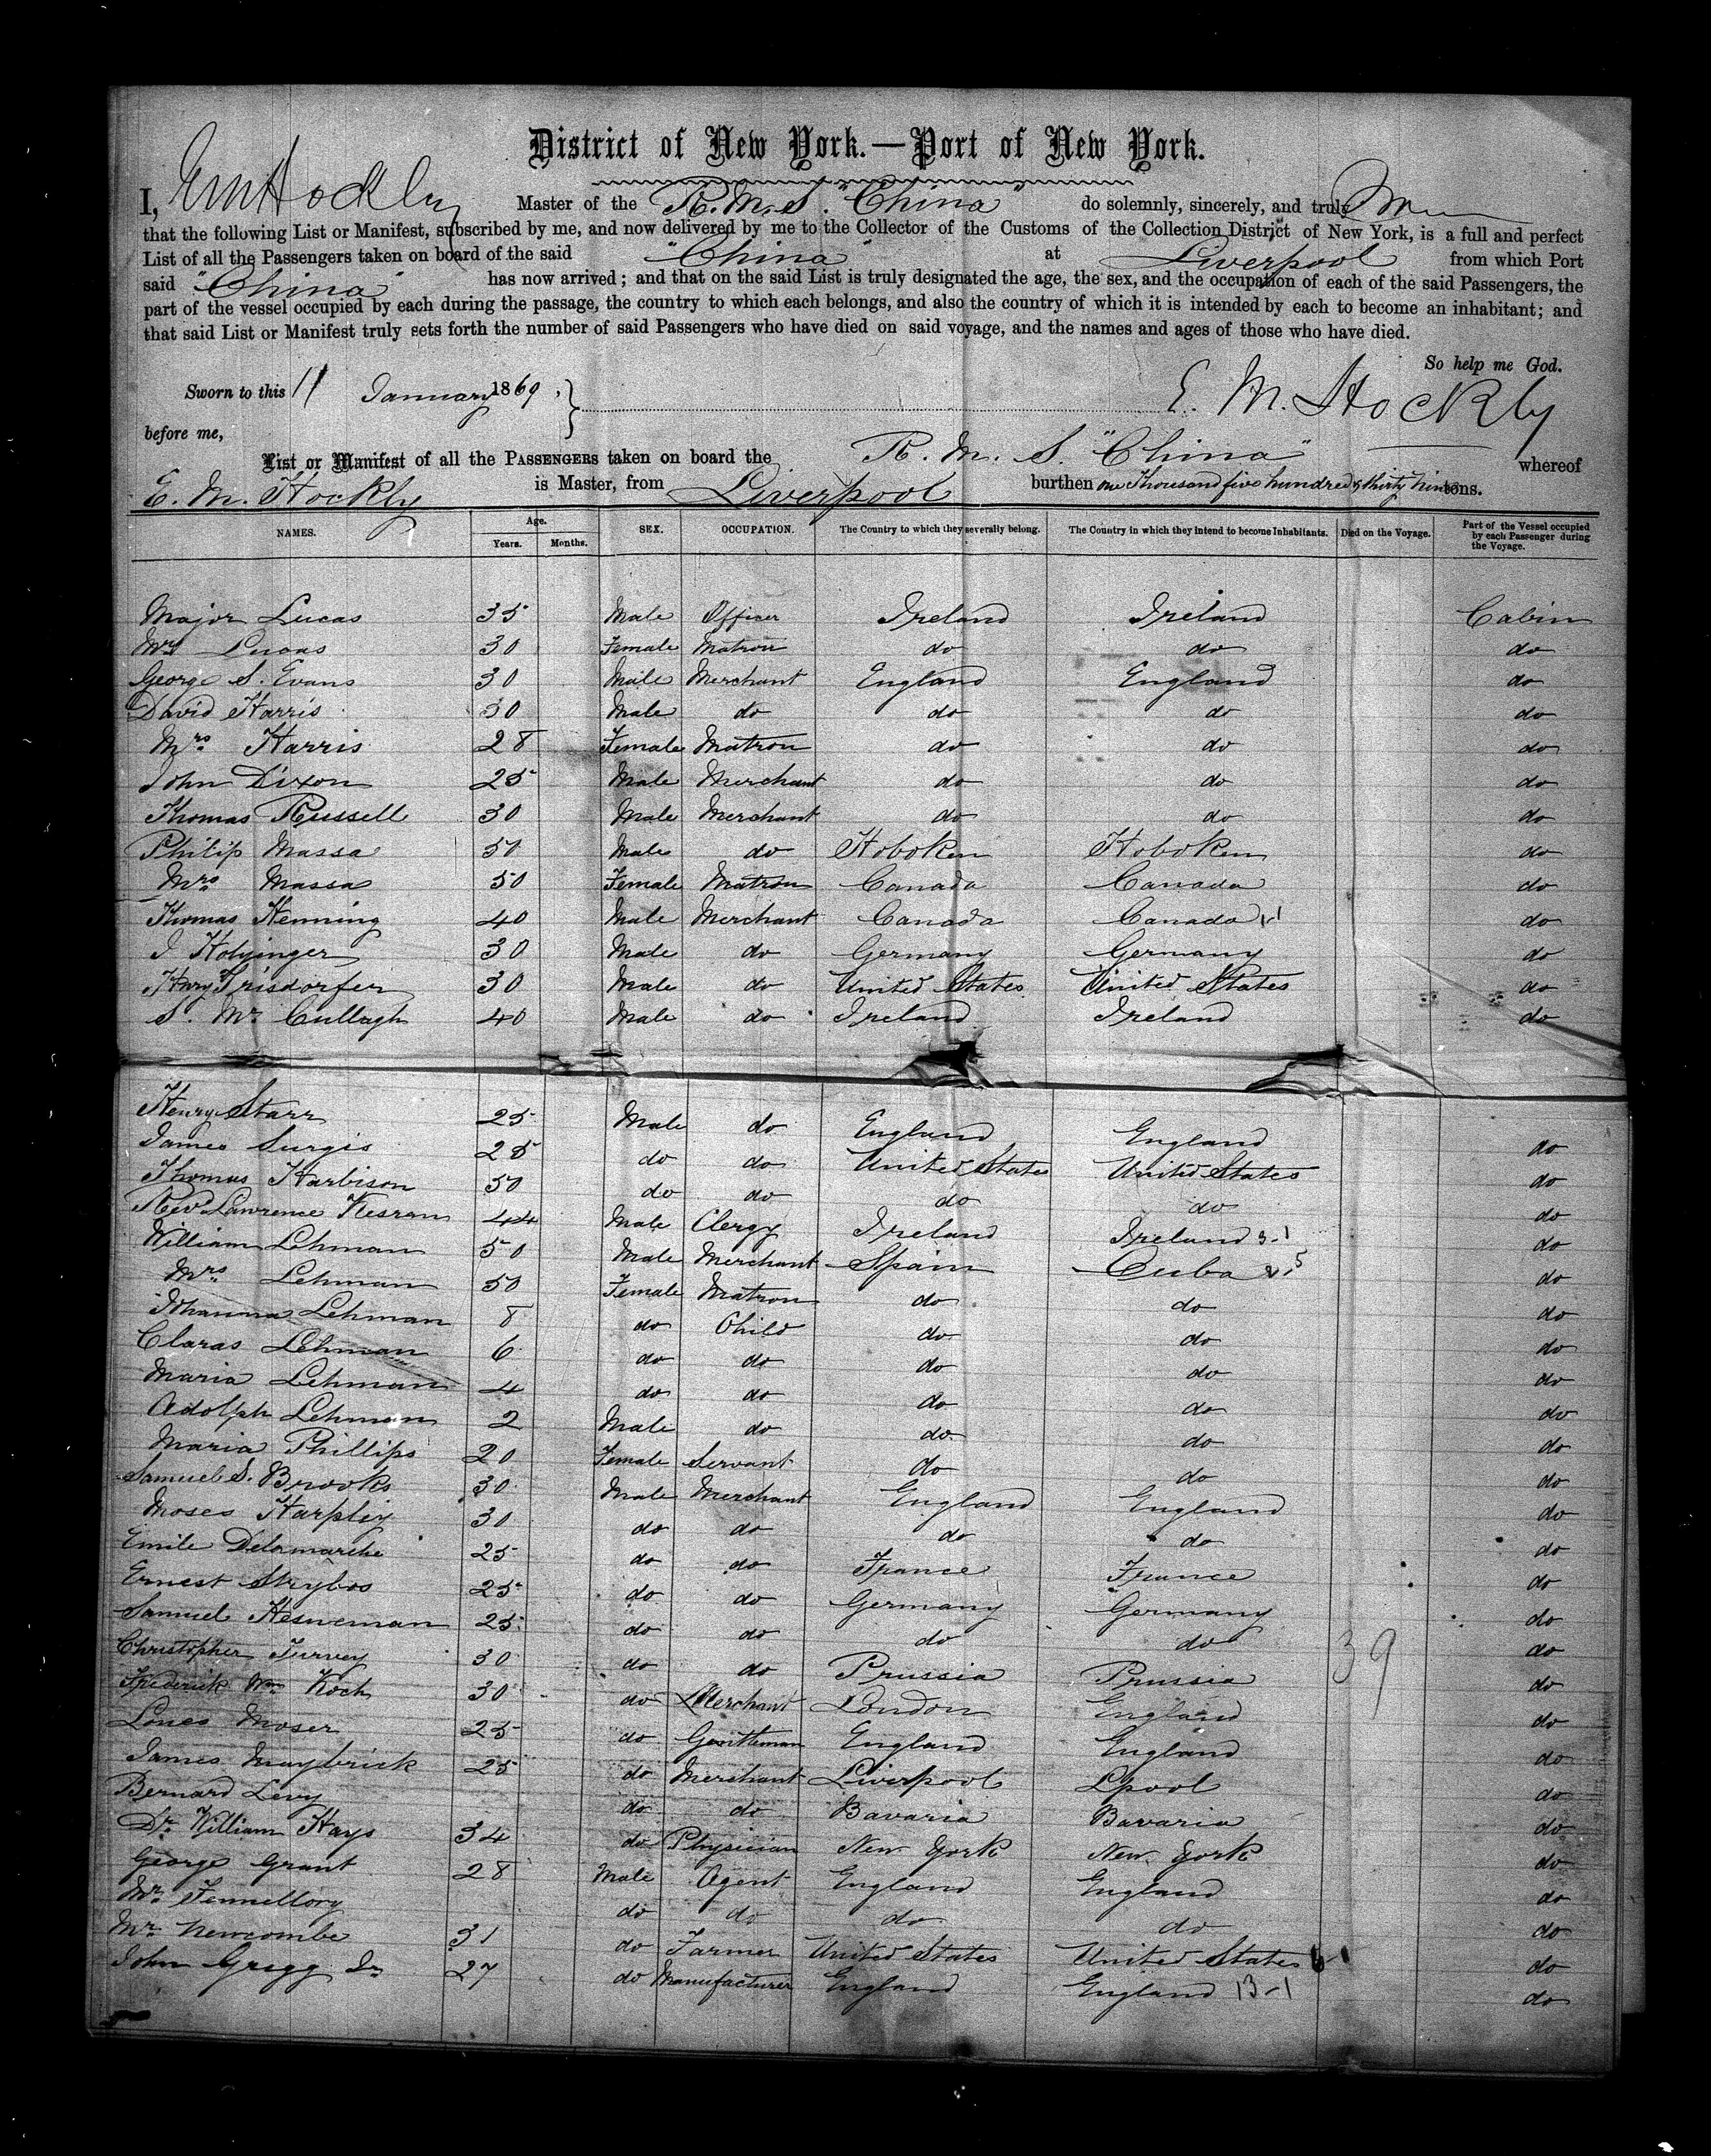 District of New York.—Port of New York.
I, EM Hockly Master of the R. M. S. "China" do solemnly, sincerely, and truly
that the following List or Manifest, subscribed by me, and now delivered by me to the Collector of the Customs of the Collection District of New York, is a full and perfect
List of all the Passengers taken on board of the said "China" at Liverpool from which Port
said "China" has now arrived; and that on the said List is truly designated the age, the sex, and the occupation of each of the said Passengers, the
part of the vessel occupied by each during the passage, the country to which each belongs, and also the country of which it is intended by each to become an inhabitant; and
that said List or Manifest truly sets forth the number of said Passengers who have died on said voyage, and the names and ages of those who have died.
So help me God.
Sworn to this 11 January 1869. E. M. Hockly
before me,
List or Manifest of all the PASSENGERS taken on board the R. M. S. "China" whereof
E. M. Hockly is Master, from Liverpool burthen one Thousand five hundred & thirty nine tons.
NAMES. Age. Years. Months. SEX. OCCUPATION. The Country to which they severally belong. The Country in which they intend to become Inhabitants. Died on the Voyage. Part of the Vessel occupied by each Passenger during the Voyage.
Major Lucas 35 Male Officer Ireland Ireland Cabin
Mrs Lucas 30 Female Matron do do do
George S. Evans 30 Male Merchant England England do
David Harris 30 Male do do do do
Mrs Harris 28 Female Matron do do do
John Dixon 25 Male Merchant do do do
Thomas Russell 30 Male Merchant do do do
Philip Massa 50 Male do Hoboken Hoboken do
Mrs Massa 50 Female Matron Canada Canada do
Thomas Henning 40 Male Merchant Canada Canada 1-1 do
30 Male do Germany Germany do
30 Male do United States United States do
S. Mc Cullagh 40 Male do Ireland Ireland do
Henry Starr 25 Male do England England do
James Surgis 25 do do United States United States do
Thomas Harbison 50 do do do do do
Revd Lawrence 44 Male Clergy Ireland Ireland 3-1 do
William Lehman 50 Male Merchant Spain Cuba do
Mrs Lehman 50 Female Matron do do do
Johanna Lehman 8 do Child do do do
Claras Lehman 6 do do do do do
Maria Lehman 4 do do do do do
Adolph Lehman 2 Male do do do do
Maria Phillips 20 Female Servant do do do
Samuel S. Brooks 30 Male Merchant England England do
Moses Harpley 30 do do do do do
Emile Delamarche 25 do do France France do
Ernest Strybos 25 do do Germany Germany do
Samuel 25 do do do do do
Christopher Turvey 30 do do Prussia Prussia do
39
Frederick Wm Koch 30 do Merchant London England do
Moser 25 do Gentleman England England do
James Maybrick 25 do Merchant Liverpool Lpool do
Bernard Levy do do Bavaria Bavaria do
Dr William Hays 34 do Physician New York New York do
George Grant 28 Male Agent England England do
Mr do do do do do
Mr Newcombe 31 do Farmer United States United States do
John Gregg Jr 27 do Manufacturer England England 13-1 do